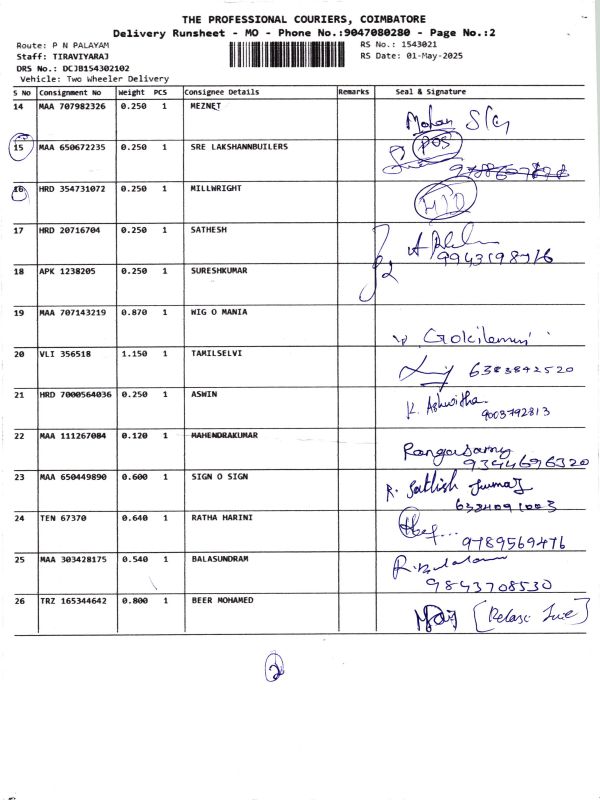 THE PROFESSIONAL COURIERS, COIMBATORE
Delivery Runsheet - MO - Phone No.:9047080280 - Page No.:2
Route: P N PALAYAM
RS No.: 1543021
Staff: TIRAVIYARAJ
RS Date: 01-May-2025
DRS No.: DCJB154302102
Vehicle: Two Wheeler Delivery
S No Consignment No Weight PCS Consignee Details Remarks Seal & Signature
14 MAA 707982326 0.250 1 MEZNET
Mohan
15 MAA 650672235 0.250 1 SRE LAKSHANNBUILERS
POS
16 HRD 354731072 0.250 1 MILLWRIGHT
17 HRD 20716704 0.250 1 SATHESH
9943198716
18 APK 1238205 0.250 1 SURESHKUMAR
2
19 MAA 707143219 0.870 1 WIG O MANIA
Gokilamani
20 VLI 356518 1.150 1 TAMILSELVI
6383842520
21 HRD 7000564036 0.250 1 ASWIN
K. Ashwitha
9003792813
22 MAA 111267084 0.120 1 MAHENDRAKUMAR
Rangasamy
9344696320
23 MAA 650449890 0.600 1 SIGN O SIGN
R. Sathish Kumar
24 TEN 67370 0.640 1 RATHA HARINI
9789569476
25 MAA 303428175 0.540 1 BALASUNDRAM
9843708530
26 TRZ 165344642 0.800 1 BEER MOHAMED
2